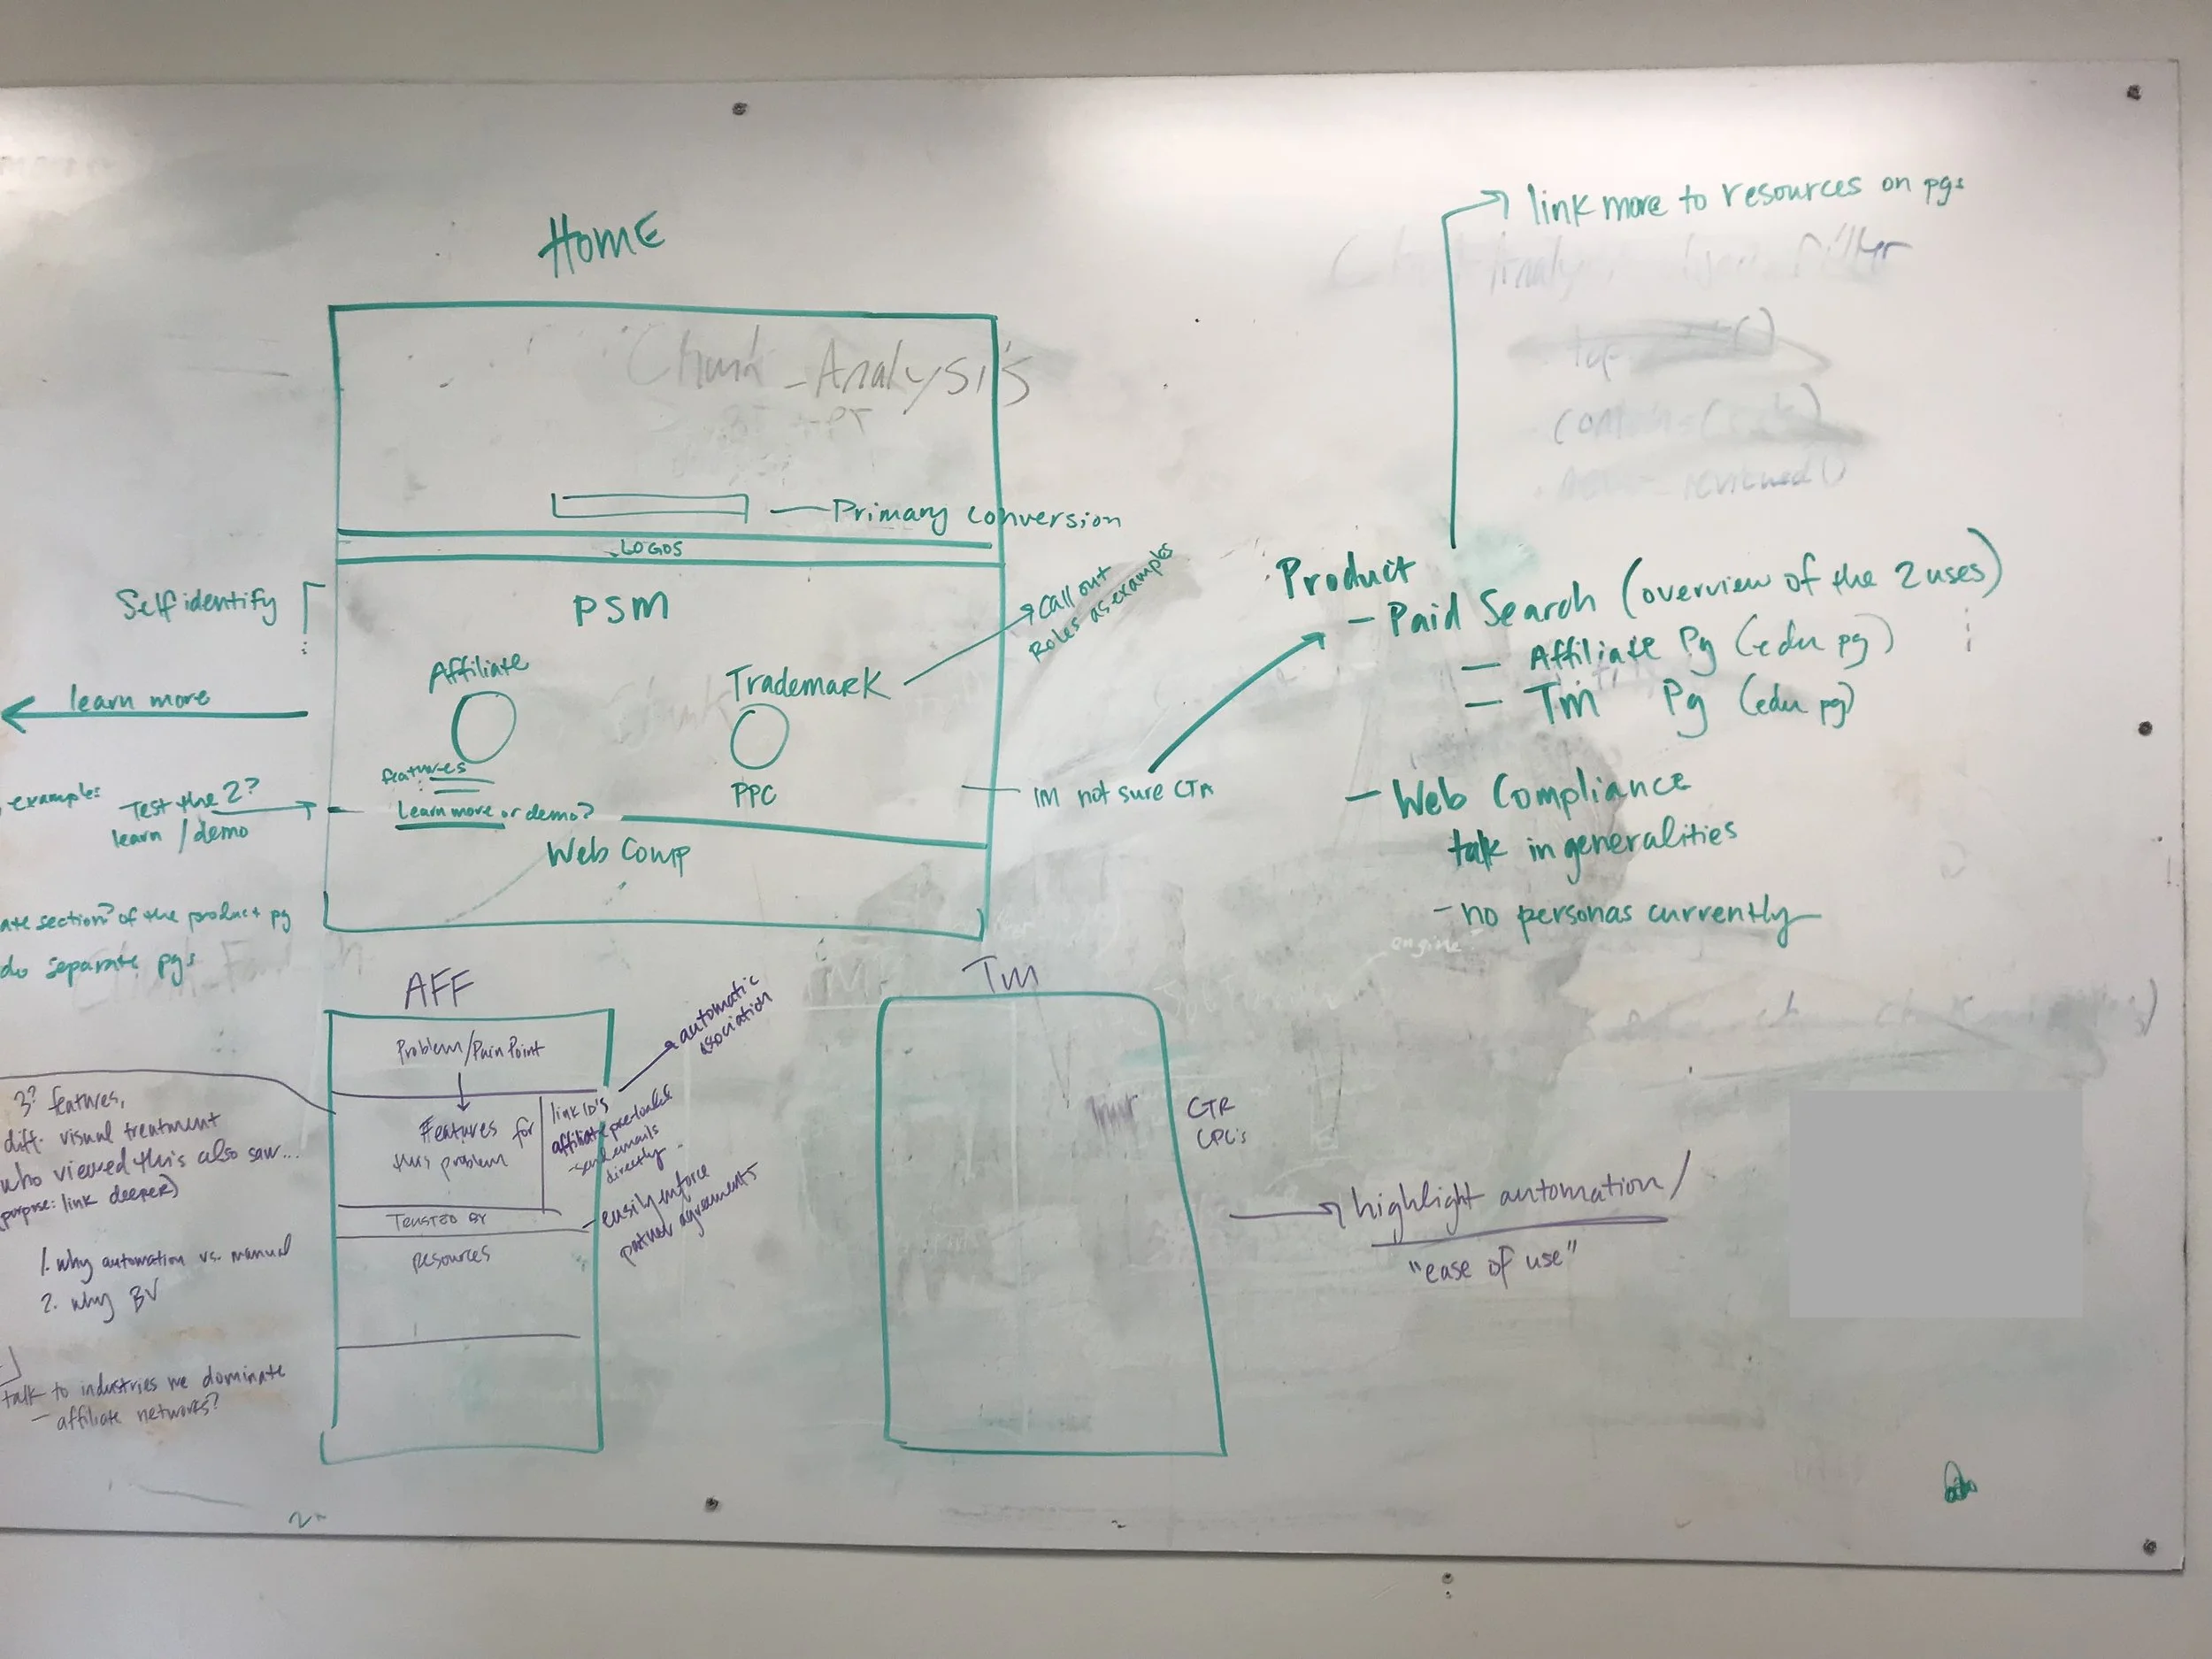 HOME
Chunk-Analysis
Primary conversion
LOGOS
Self identify
PSM
Affiliate
Trademark
call out
Roles as examples
learn more
features
PPC
IM not sure CTA
examples
Test the 2?
learn / demo
Learn more or demo?
Web Comp
section? of the product pg
do separate pgs
link more to resources on pgs
Product
- Paid Search (overview of the 2 uses)
- Affiliate Pg (edu pg)
- Tm Pg (edu pg)
- Web Compliance
talk in generalities
- no personas currently
engine
AFF
Problem/Pain Point
automatic
association
Features for
this problem
link ID's
affiliate
- send emails
directly
easily enforce
partner agreements
TRUSTED BY
Resources
3? features,
diff. visual treatment
who viewed this also saw...
purpose: link deeper)
1. why automation vs. manual
2. why BV
talk to industries we dominate
- affiliate networks?
Tm
CTR
CPC's
highlight automation/
"ease of use"